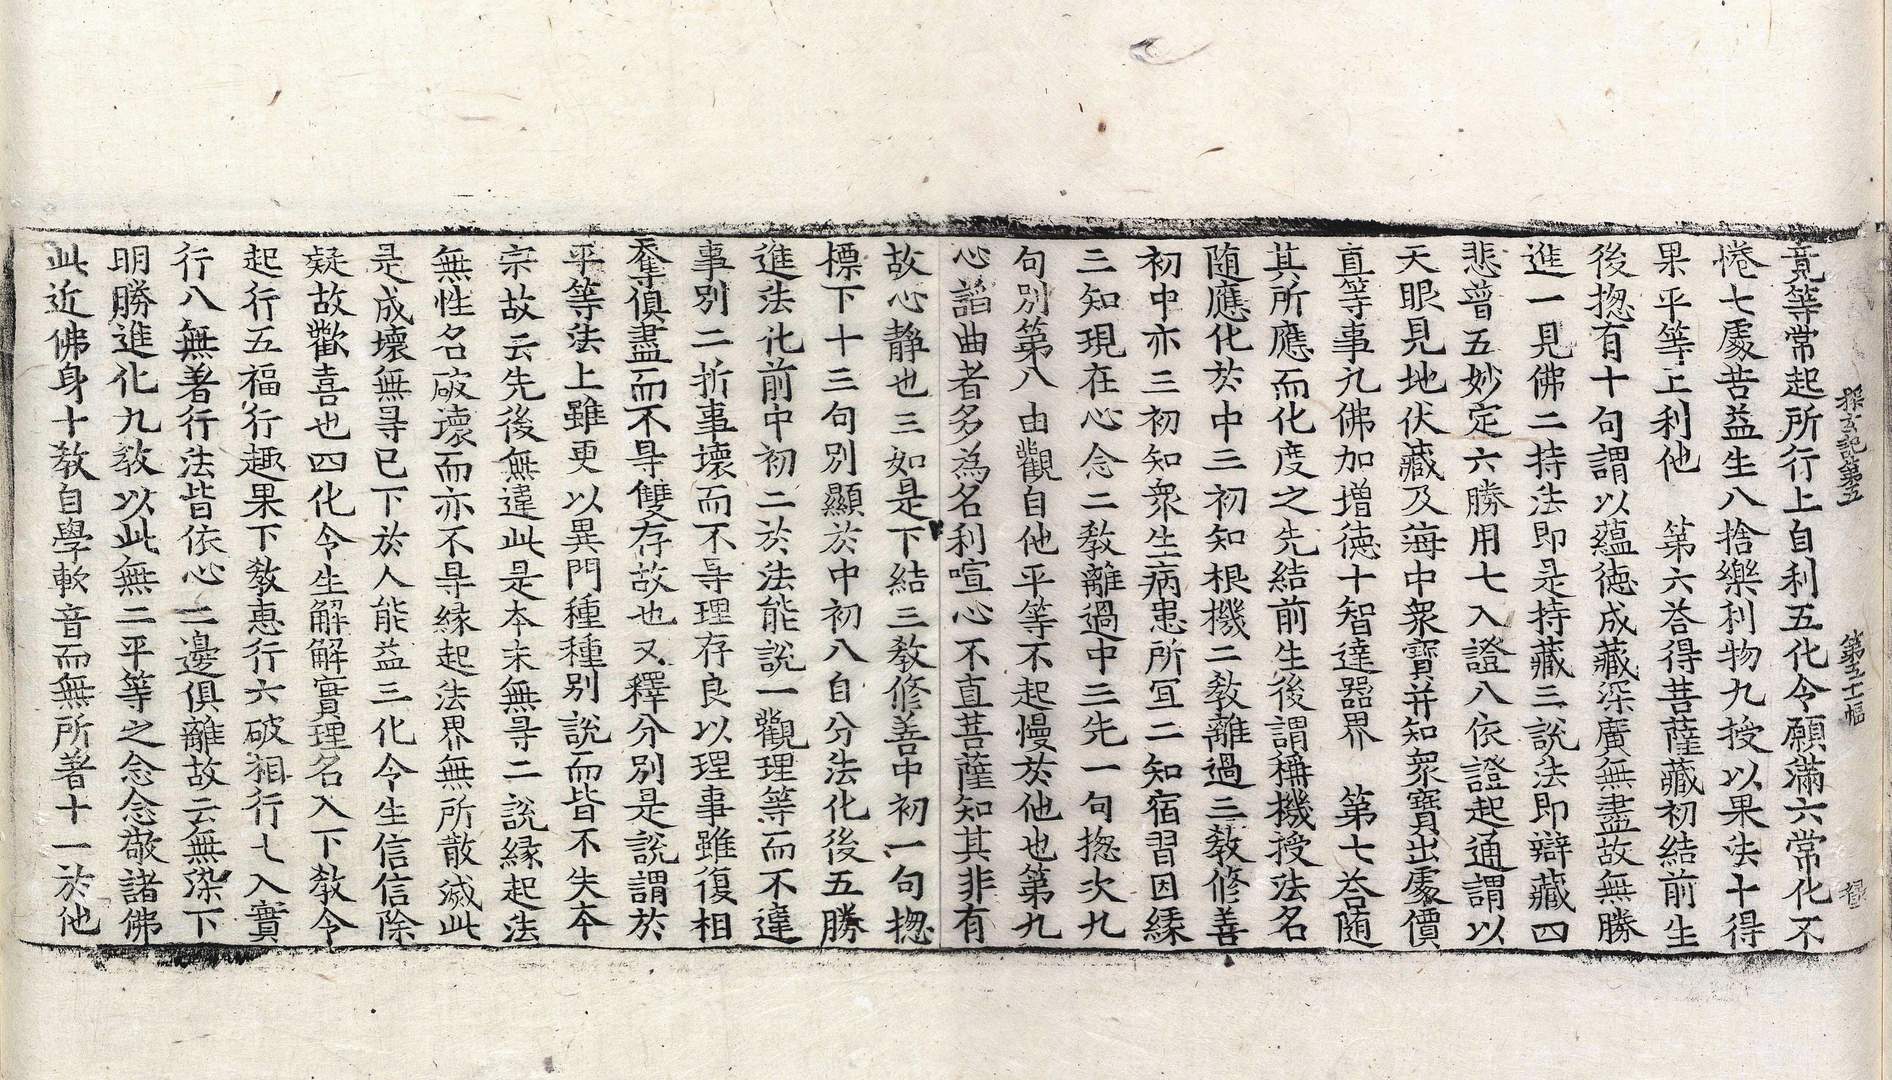 探玄記第五　第五十幅　壘
竟等常起所行上自利五化令願滿六常化不
惓七處苦益生八捨樂利物九授以果法十得
果平等上利他　第六荅得菩薩藏初結前生
後揔有十句謂以蘊徳成藏深廣無盡故無勝
進一見佛二持法即是持藏三說法即辯藏四
悲普五妙定六勝用七入證八依證起通謂以
天眼見地伏藏及海中衆寶并知衆寶出處價
直等事九佛加增徳十智達器界　第七荅随
其所應而化度之先結前生後謂稱機授法名
随應化於中三初知根機二教離過三教修善
初中亦三初知衆生病患所冝二知宿習因縁
三知現在心念二教離過中三先一句揔次九
句別第八由觀自他平等不起慢於他也第九
心諂曲者多為名利喧心不直菩薩知其非有
故心静也三如是下結三教修善中初一句揔
標下十三句別顯於中初八自分法化後五勝
進法化前中初二於法能說一觀理等而不違
事別二折事壞而不㝵理存良以理事雖復相
奪俱盡而不㝵雙存故也又釋分別是說謂於
平等法上雖更以異門種種別說而皆不失夲
宗故云先後無違此是夲末無㝵二說縁起法
無性名破壞而亦不㝵縁起法界無所散滅此
是成壞無㝵已下於人能益三化令生信信除
疑故歡喜也四化令生解解實理名入下教令
起行五福行趣果下教惠行六破相行七入實
行八無著行法皆依心二邊俱離故云無染下
明勝進化九教以此無二平等之念念敬諸佛
此近佛身十教自學軟音而無所著十一於他